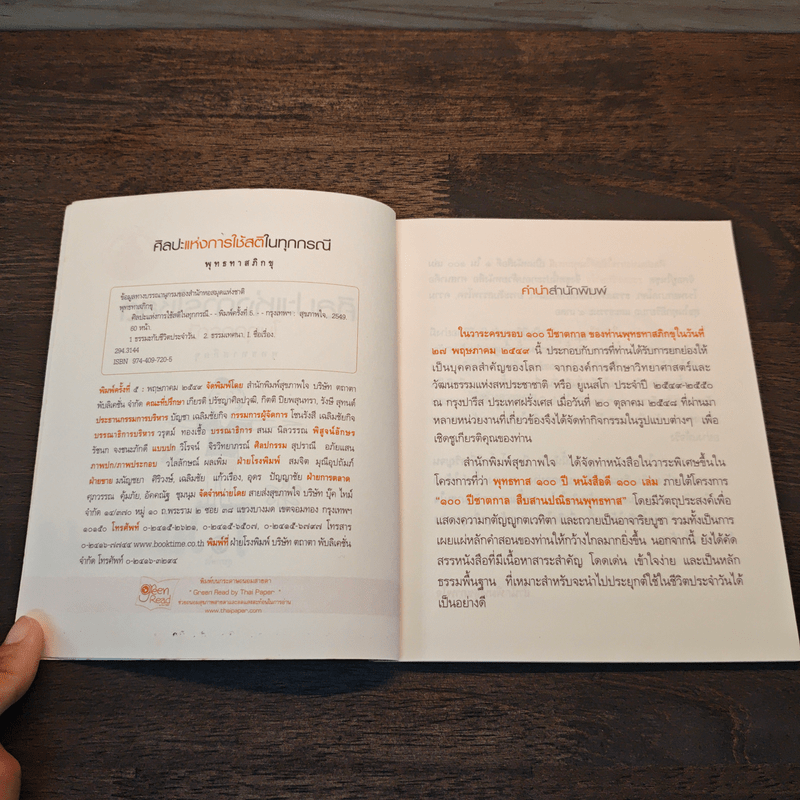 ศิลปะแห่งการใช้สติในทุกกรณี
พุทธทาสภิกขุ
ข้อมูลทางบรรณานุกรมของสำนักหอสมุดแห่งชาติ
พุทธทาสภิกขุ
ศิลปะแห่งการใช้สติในทุกกรณี.- - พิมพ์ครั้งที่ 5. - - กรุงเทพฯ : สุขภาพใจ, 2549.
60 หน้า.
1 ธรรมะกับชีวิตประจำวัน. 2. ธรรมเทศนา. I. ชื่อเรื่อง.
294.3144
ISBN 974-409-720-5
พิมพ์ครั้งที่ ๕ : พฤษภาคม ๒๕๔๙ จัดพิมพ์โดย สำนักพิมพ์สุขภาพใจ บริษัท ตถาตา
พับลิเคชั่น จำกัด คณะที่ปรึกษา เกียรติ ปรัชญาศิลปวุฒิ, กิตติ ปิยพสุนทรา, รังษี สุทนต์
ประธานกรรมการบริหาร บัญชา เฉลิมชัยกิจ กรรมการผู้จัดการ โชนรังสี เฉลิมชัยกิจ
บรรณาธิการบริหาร วรุตม์ ทองเชื้อ บรรณาธิการ สนม นิลวรรณ พิสูจน์อักษร
รัชนก จงชนะภักดี แบบปก วิโรจน์ จิรวิทยาภรณ์ ศิลปกรรม สุปราณี อภัยแสน
ภาพปก/ภาพประกอบ วไลลักษณ์ ผลเพิ่ม ฝ่ายโรงพิมพ์ สมจิต มุณีอุปถัมภ์
ฝ่ายขาย มนัญชยา ศิริวงษ์, เฉลิมชัย แก้วเรือง, อุดร ปัญญาชัย ฝ่ายการตลาด
ศุภวรรณ คุ้มภัย, อัคคณัฐ ชุมนุม จัดจำหน่ายโดย สายส่งสุขภาพใจ บริษัท บุ๊ค ไทม์
จำกัด ๑๔/๓๗๐ หมู่ ๑๐ ถ.พระราม ๒ ซอย ๓๘ แขวงบางมด เขตจอมทอง กรุงเทพฯ
๑๐๑๕๐ โทรศัพท์ ๐-๒๔๑๕-๒๖๒๑, ๐-๒๔๑๕-๖๕๐๗, ๐-๒๔๑๕-๖๗๙๗ โทรสาร
๐-๒๔๑๖-๗๗๔๔ www.booktime.co.th พิมพ์ที่ ฝ่ายโรงพิมพ์ บริษัท ตถาตา พับลิเคชั่น
จำกัด โทรศัพท์ ๐-๒๔๑๖-๓๒๙๔
green Read
พิมพ์บนกระดาษถนอมสายตา
" Green Read by Thai Paper "
www.thaipaper.com
คำนำสำนักพิมพ์
ในวาระครบรอบ ๑๐๐ ปีชาตกาล ของท่านพุทธทาสภิกขุในวันที่
๒๗ พฤษภาคม ๒๕๔๙ นี้ ประกอบกับการที่ท่านได้รับการยกย่องให้
เป็นบุคคลสำคัญของโลก จากองค์การศึกษาวิทยาศาสตร์และ
วัฒนธรรมแห่งสหประชาชาติ หรือ ยูเนสโก ประจำปี ๒๕๔๙-๒๕๕๐
ณ กรุงปารีส ประเทศฝรั่งเศส เมื่อวันที่ ๒๐ ตุลาคม ๒๕๔๘ ที่ผ่านมา
หลายหน่วยงานที่เกี่ยวข้องจึงได้จัดทำกิจกรรมในรูปแบบต่างๆ เพื่อ
เชิดชูเกียรติคุณของท่าน
สำนักพิมพ์สุขภาพใจ ได้จัดทำหนังสือในวาระพิเศษขึ้นใน
โครงการที่ว่า พุทธทาส ๑๐๐ ปี หนังสือดี ๑๐๐ เล่ม ภายใต้โครงการ
"๑๐๐ ปีชาตกาล สืบสานปณิธานพุทธทาส" โดยมีวัตถุประสงค์เพื่อ
แสดงความกตัญญูกตเวทิตา และถวายเป็นอาจาริยบูชา รวมทั้งเป็นการ
เผยแผ่หลักคำสอนของท่านให้กว้างไกลมากยิ่งขึ้น นอกจากนี้ ยังได้คัด
สรรหนังสือที่มีเนื้อหาสาระสำคัญ โดดเด่น เข้าใจง่าย และเป็นหลัก
ธรรมพื้นฐาน ที่เหมาะสำหรับจะนำไปประยุกต์ใช้ในชีวิตประจำวันได้
เป็นอย่างดี